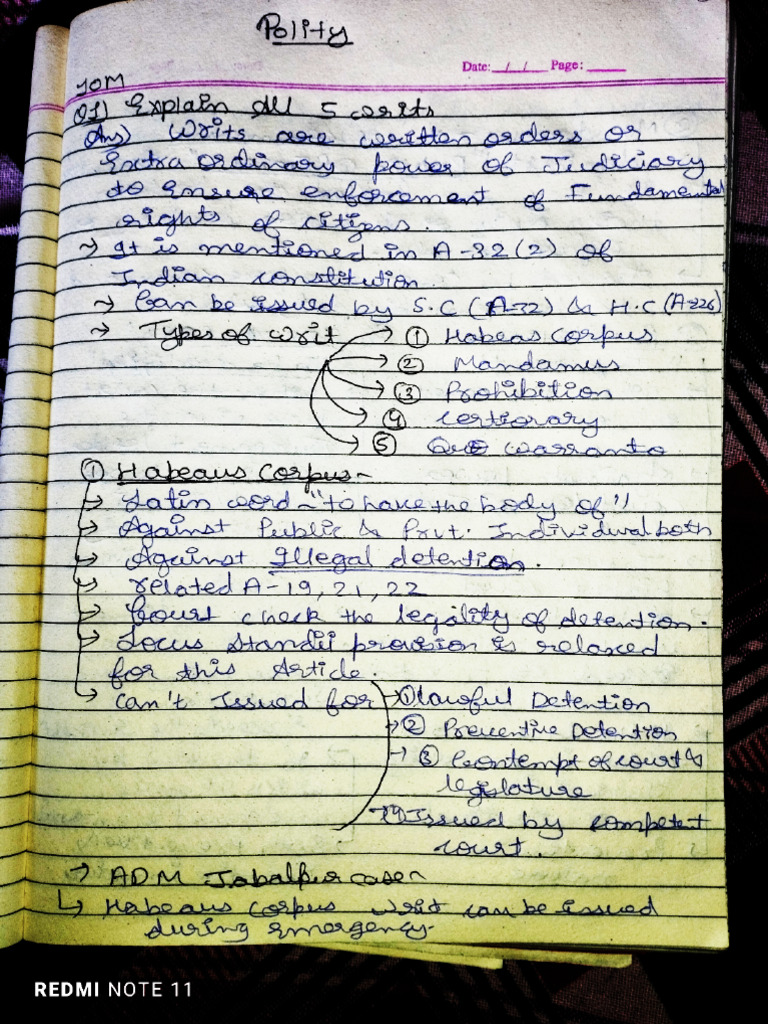 Polity
Date: __/__/__ Page: ____
10M
Q1) Explain All 5 writs
Ans) Writs are written orders or
Extra ordinary power of Judiciary
to Ensure enforcement of Fundamental
rights of citizens.
→ It is mentioned in A-32(2) of
Indian constitution
→ Can be issued by S.C (A-32) & H.C (A-226)
→ Types of writ → ① Habeas Corpus
→ ② Mandamus
→ ③ Prohibition
→ ④ Certiorary
→ ⑤ Quo warranto
① Habeaus Corpus-
→ Latin word - "to have the body of"
→ Against Public & Prvt. Individual both
→ Against Illegal detention.
→ related A-19, 21, 22
→ Court check the legality of detention.
→ Locus Standii provision is relaxed
for this Article.
→ Can't Issued for → ① lawful Detention
→ ② Preventive Detention
→ ③ Contempt of court &
legislature
→ Issued by competent
court.
→ ADM Jabalpur case-
↳ Habeaus Corpus writ can be issued
during emergency.
REDMI NOTE 11